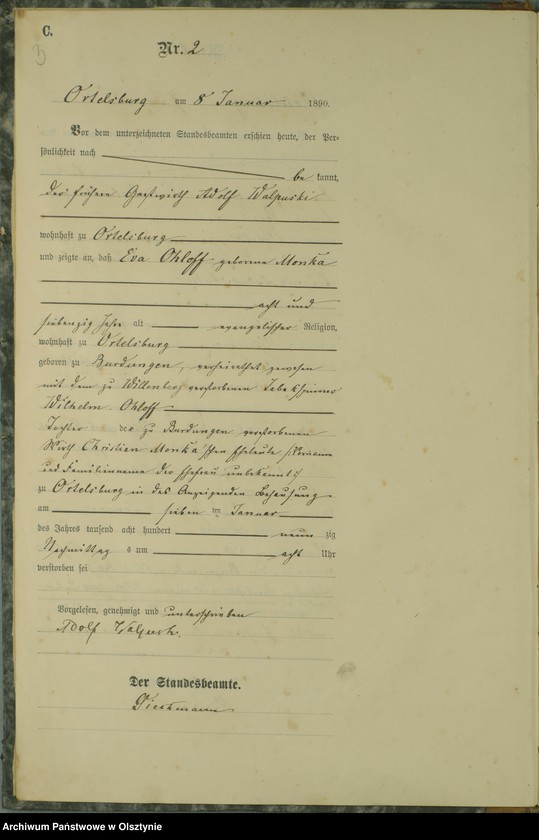 C.
3
Nr. 2
Ortelsburg am 8 Januar 1890.
Vor dem unterzeichneten Standesbeamten erschien heute, der Per-
sönlichkeit nach
be kannt,
der frühere Gastwirth Adolf Walpuski
wohnhaft zu Ortelsburg
und zeigte an, daß Eva Ohloff geborene Monka
acht und
siebenzig Jahre alt evangelischer Religion,
wohnhaft zu Ortelsburg
geboren zu Burdungen, verheirathet gewesen
mit dem zu Willenberg verstorbenen
Wilhelm Ohloff
Tochter der zu Burdungen verstorbenen
Wirth Christian Monka'schen Eheleute (:Vorname
und Familienname der Ehefrau unbekannt:)
zu Ortelsburg in des Anzeigenden Behausung
am sieben ten Januar
des Jahres tausend acht hundert neun zig
Nachmittag s um acht Uhr
verstorben sei
Vorgelesen, genehmigt und unterschrieben
Adolf Walpuski.
Der Standesbeamte.
Archiwum Państwowe w Olsztynie